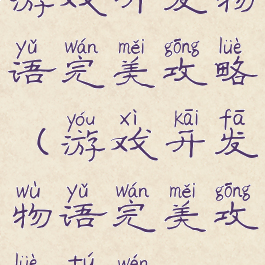 游戏开发物
yǔ wán měi gōng lüè
语完美攻略
yóu xì kāi fā
（游戏开发
wù yǔ wán měi gōng
物语完美攻
lüè tú wén